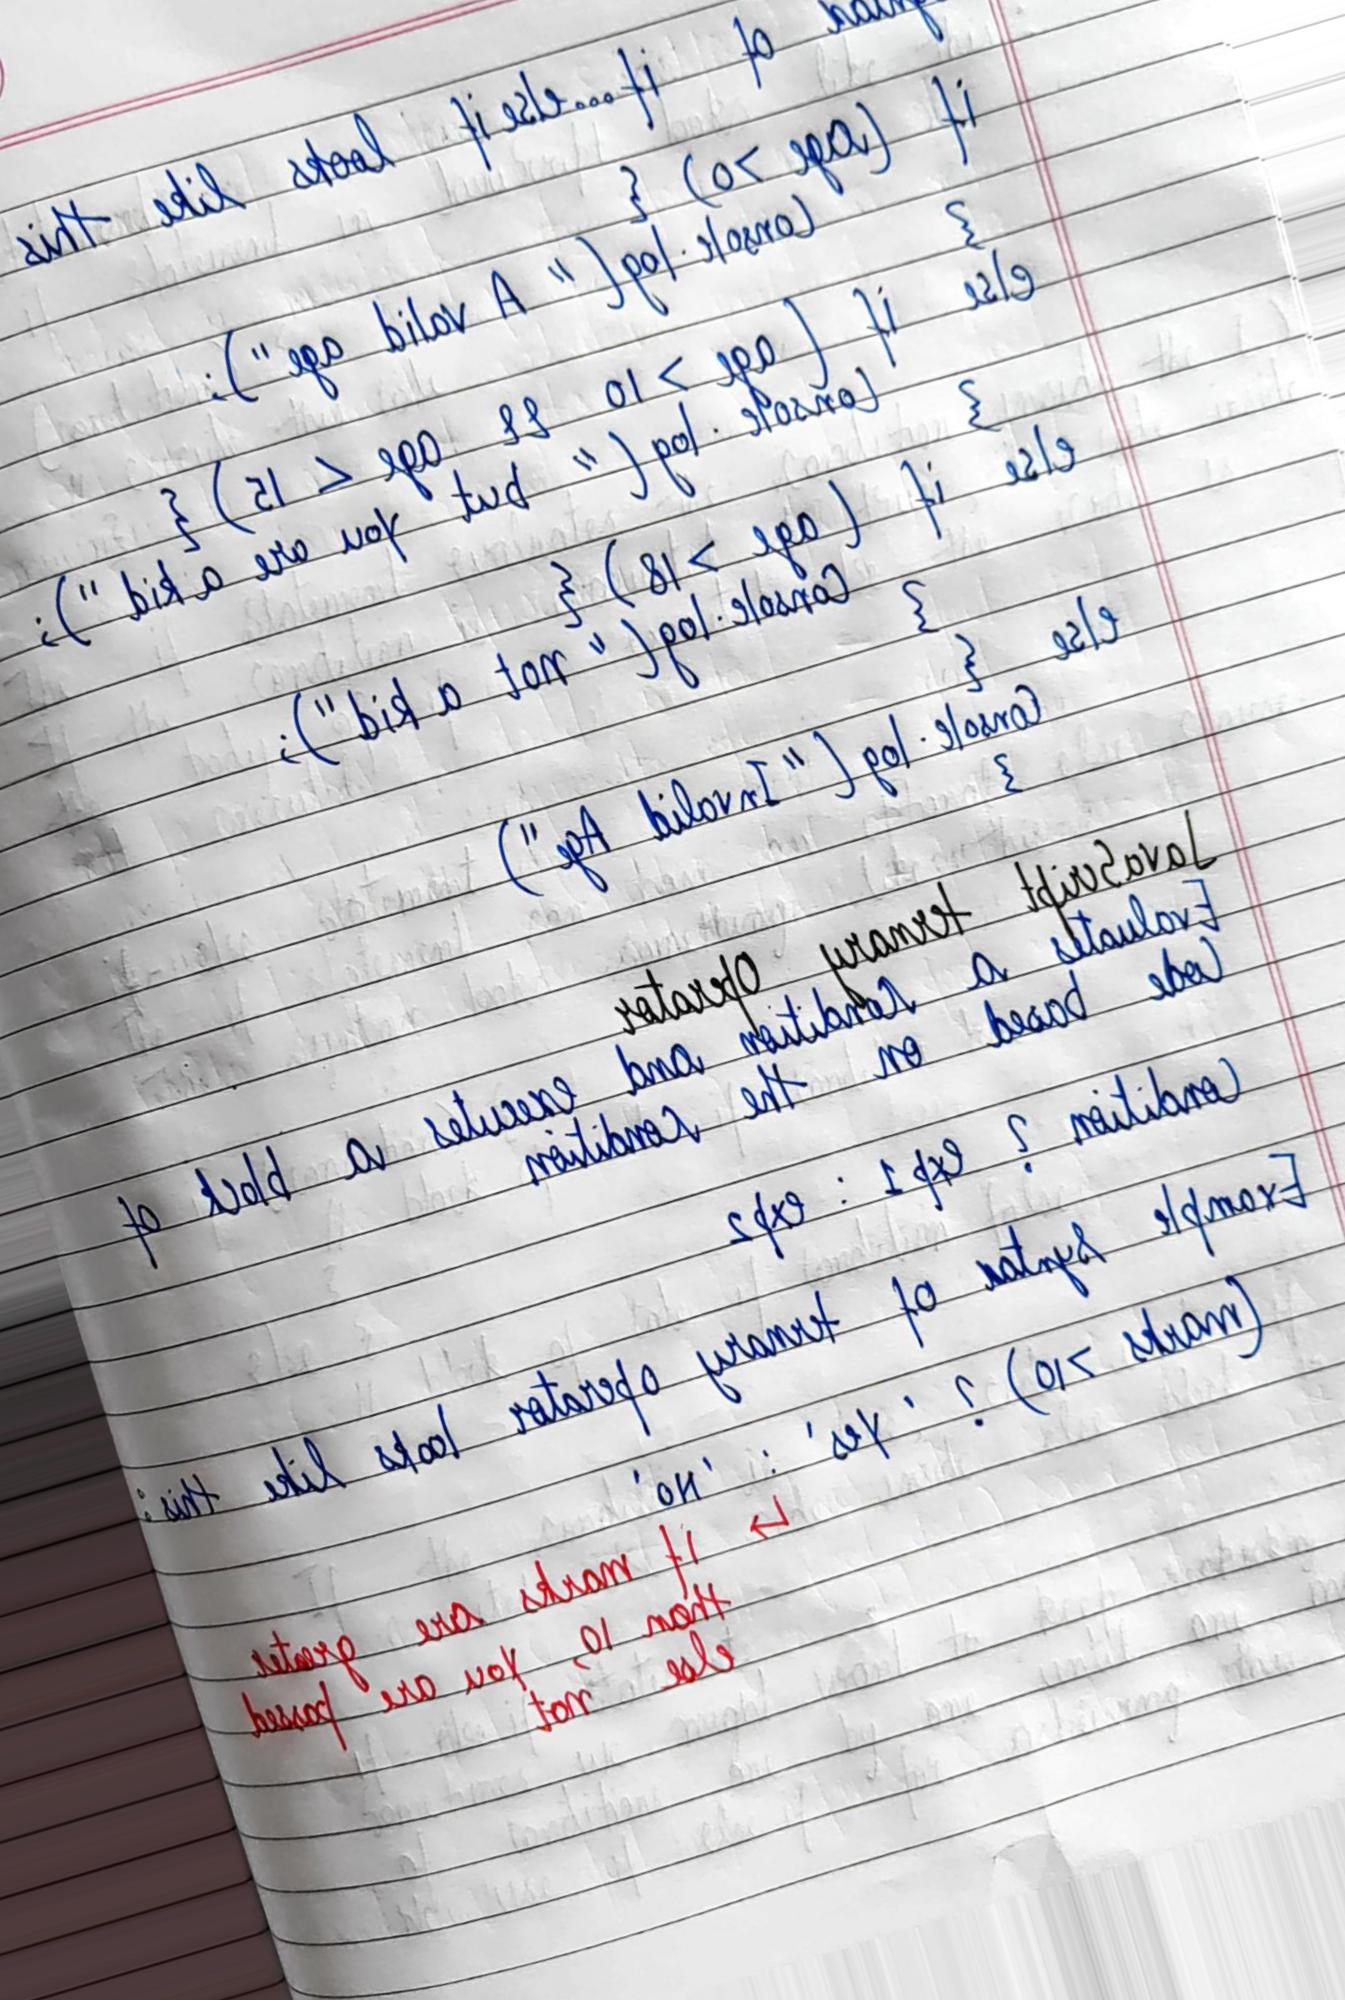 of if...else if looks like this
if (age >0) {
Console.log("A valid age");
}
else if (age >10 && age < 15) {
Console.log("but you are a kid");
}
else if (age >18) {
Console.log("not a kid");
}
else {
Console.log("Invalid Age")
}
JavaScript ternary Operator
Evaluates a Condition and executes a block of
Code based on the Condition
Condition ? exp1 : exp2
Example syntax of ternary operator looks like this:
(marks >10) ? 'Yes' : 'No'
↳ if marks are greater
than 10, you are passed
else not